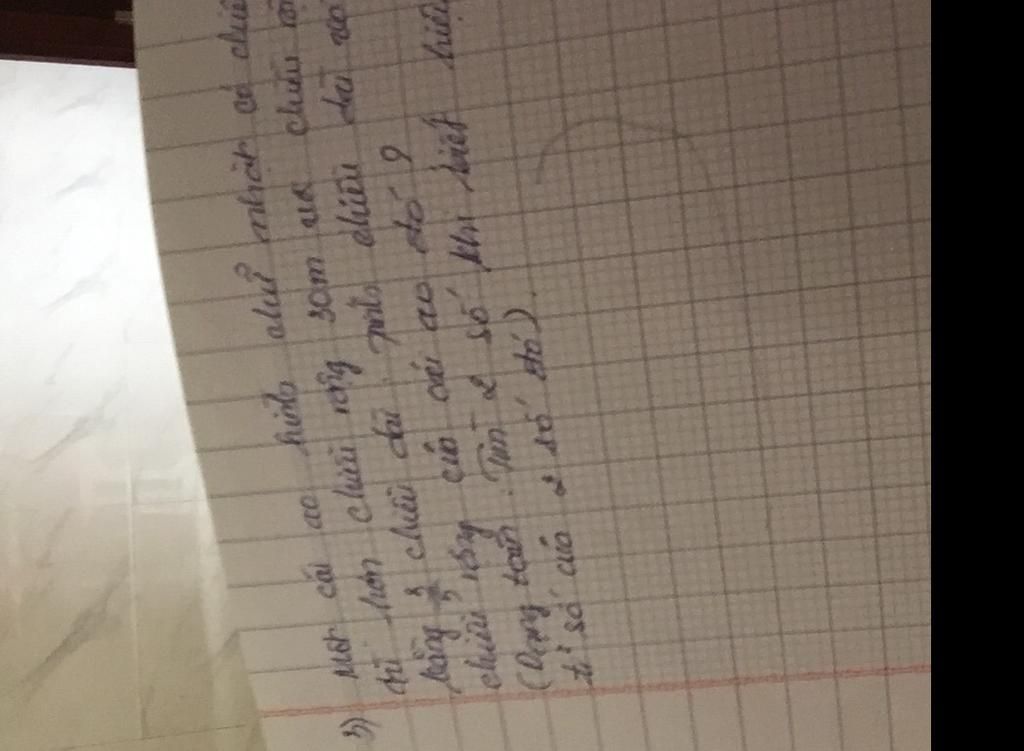 3) Một cái ao hình chữ nhật có chiều
dài hơn chiều rộng 30m và chiều rộng
bằng chiều dài. Tính chiều dài và
chiều rộng của cái ao đó?
(Dạng toán: Tìm 2 số khi biết hiệu
tỉ số của 2 số đó).